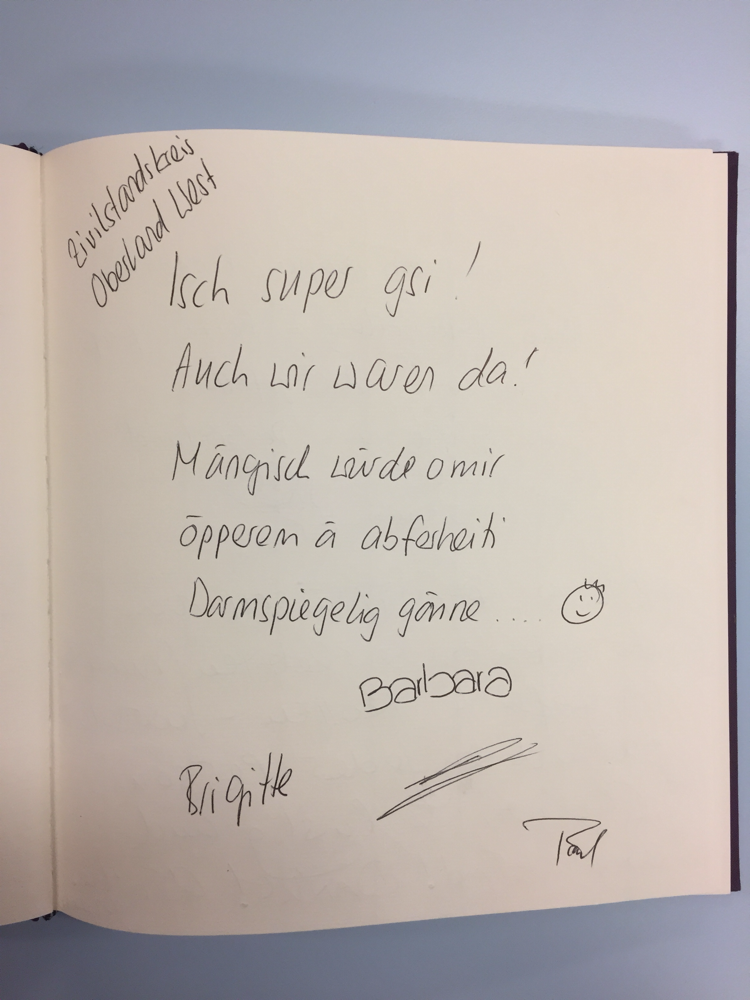 Zivilstandskreis
Oberland West
Isch super gsi!
Auch wir waren da!
Mängisch würde o mir
öpperem ä abferheiti
Darmspiegelig gönne ....
Barbara
Brigitte